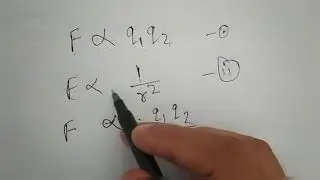 F ∝ q₁q₂ —①
F ∝ 1/r² —ⓘⓘ
F ∝ q₁q₂